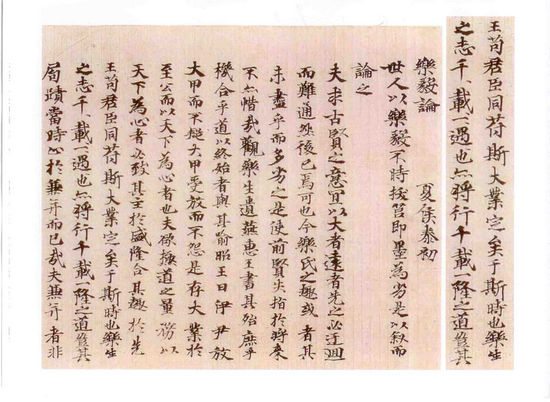 王苟君臣同苻斯大業定矣于斯時也樂生
之志千載一遇也亦將行千載一隆之道豈其
樂毅論 夏侯泰初
世人以樂毅不時拔筥即墨為劣是以叙而
論之
夫求古賢之意宜以大者遠者先之必迂迴
而難通然後已焉可也今樂氏之趣或者其
未盡乎而多劣之是使前賢失指於將來
不亦惜哉觀樂生遺燕惠王書其殆庶乎
機合乎道以終始者與其喻昭王曰伊尹放
大甲而不疑大甲受放而不怨是存大業於
至公而以天下為心者也夫欲極道之量務以
天下為心者必致其主於盛隆合其趣於先
王苟君臣同苻斯大業定矣于斯時也樂生
之志千載一遇也亦將行千載一隆之道豈其
局蹟當時止於兼并而已哉夫兼并者非